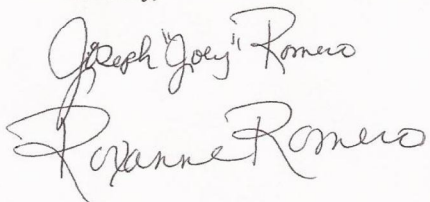 Joseph "Joey" Romero
Roxanne Romero